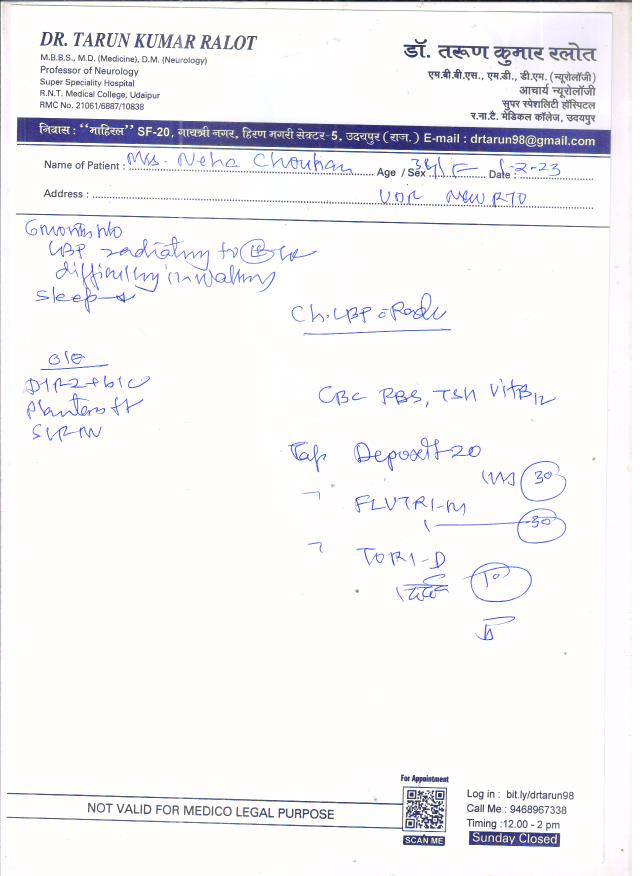 DR. TARUN KUMAR RALOT
M.B.B.S., M.D. (Medicine), D.M. (Neurology)
Professor of Neurology
Super Speciality Hospital
R.N.T. Medical College, Udaipur
RMC No. 21061/6887/10838
डॉ. तरूण कुमार रलोत
एम.बी.बी.एस., एम.डी., डी.एम. (न्यूरोलॉजी)
आचार्य न्यूरोलॉजी
सुपर स्पेशलिटी हॉस्पिटल
र.ना.टै. मेडिकल कॉलेज, उदयपुर
निवास : "माहिरल" SF-20, गायत्री नगर, हिरण मगरी सेक्टर-5, उदयपुर (राज.) E-mail : drtarun98@gmail.com
Name of Patient : Mrs. Neha Chouhan Age / Sex F Date : -2-23
Address : NEW RTO
6 months
LBP radiating to
difficulty in walking
Sleep
Ch. LBP
O/E
Planters
CBC RBS, TSH Vit B12
Tab 20
30
FLUTRI-M
30
TORI-D
10
NOT VALID FOR MEDICO LEGAL PURPOSE
For Appointment
SCAN ME
Log in : bit.ly/drtarun98
Call Me : 9468967338
Timing :12.00 - 2 pm
Sunday Closed